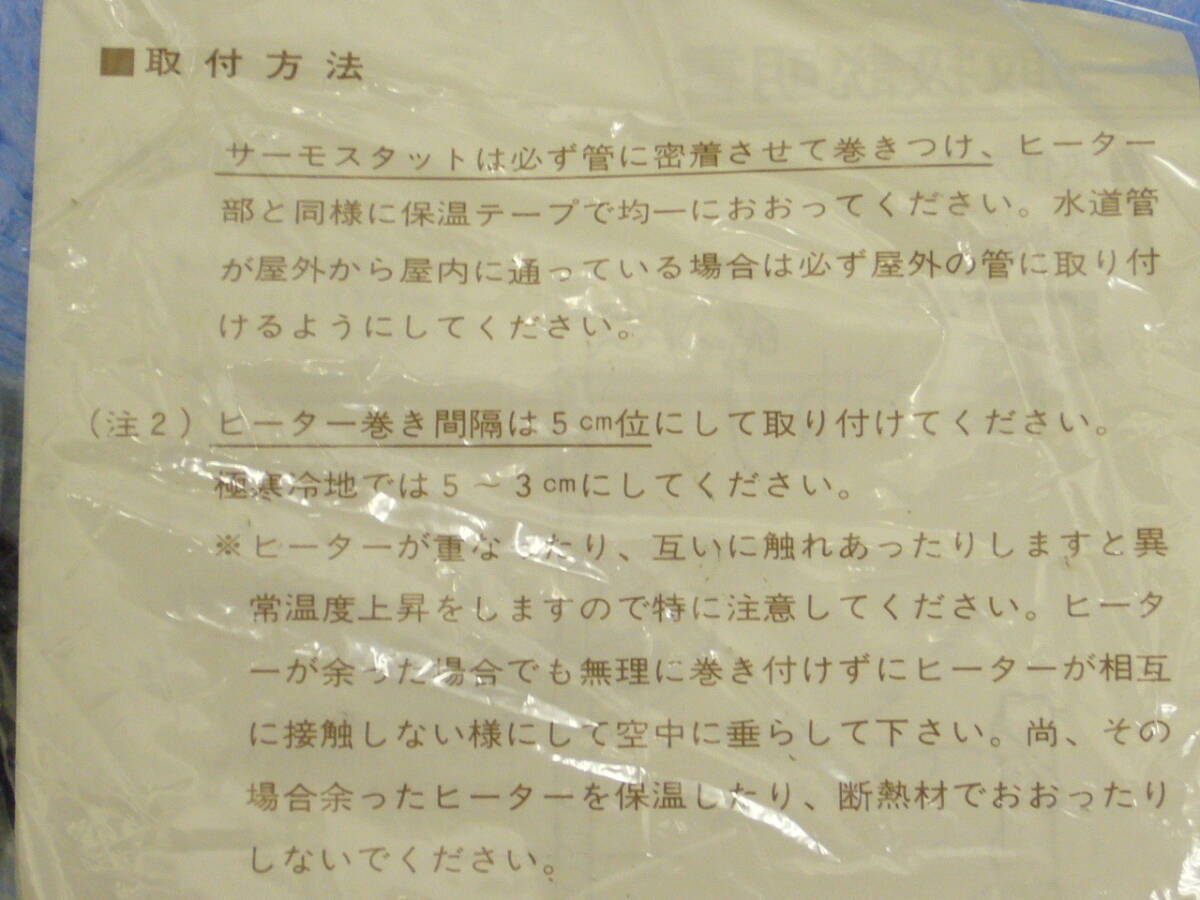 ■取付方法
サーモスタットは必ず管に密着させて巻きつけ、ヒーター
部と同様に保温テープで均一におおってください。水道管
が屋外から屋内に通っている場合は必ず屋外の管に取り付
けるようにしてください。
（注２）ヒーター巻き間隔は５cm位にして取り付けてください。
極寒冷地では５～３cmにしてください。
※ヒーターが重なったり、互いに触れあったりしますと異
常温度上昇をしますので特に注意してください。ヒータ
ーが余った場合でも無理に巻き付けずにヒーターが相互
に接触しない様にして空中に垂らして下さい。尚、その
場合余ったヒーターを保温したり、断熱材でおおったり
しないでください。